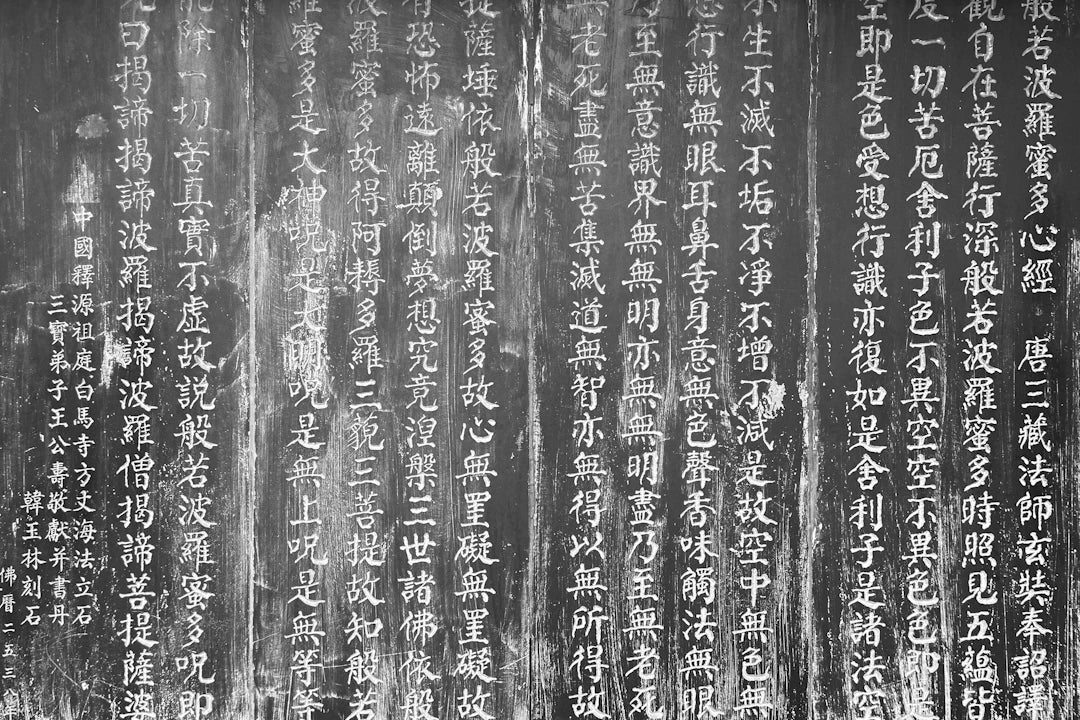 般若波羅蜜多心經　唐三藏法師玄奘奉詔譯
觀自在菩薩行深般若波羅蜜多時照見五蘊皆
度一切苦厄舍利子色不異空空不異色色即是
空即是色受想行識亦復如是舍利子是諸法空
不生不滅不垢不淨不增不減是故空中無色無
想行識無眼耳鼻舌身意無色聲香味觸法無眼
乃至無意識界無無明亦無無明盡乃至無老死
無老死盡無苦集滅道無智亦無得以無所得故
提薩埵依般若波羅蜜多故心無罣礙無罣礙故
有恐怖遠離顛倒夢想究竟涅槃三世諸佛依般
波羅蜜多故得阿耨多羅三藐三菩提故知般若
羅蜜多是大神呪是大明呪是無上呪是無等等
能除一切苦真實不虛故説般若波羅蜜多呪即
曰揭諦揭諦波羅揭諦波羅僧揭諦菩提薩婆
中國釋源祖庭白馬寺方丈海法立石
三寶弟子王公壽敬獻并書丹
韓玉林刻石
佛曆二五三八年